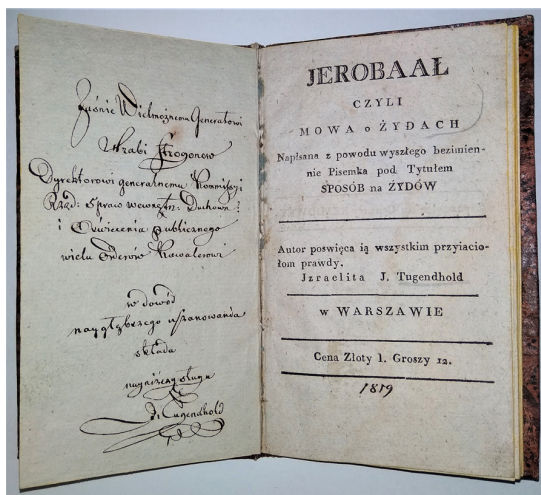 Jaśnie Wielmożnemu Generałowi
Hrabi Strogonow
Dyrektorowi generalnemu Kommissyi
Rząd: Spraw wewnętr: Duchown:
i Oświecenia publicznego
wielu Orderów Kawalerowi
w dowód
naygłębszego uszanowania
składa
nayniższy sługa
J: Tugendhold
JEROBAAŁ
CZYLI
MOWA o ŻYDACH
Napisana z powodu wyszłego bezimien-
nie Pisemka pod Tytułem
SPOSÓB na ŻYDÓW
Autor poswięca ią wszystkim przyiacio-
łom prawdy.
Izraelita J. Tugendhold
w WARSZAWIE
Cena Złoty 1. Groszy 12.
1819